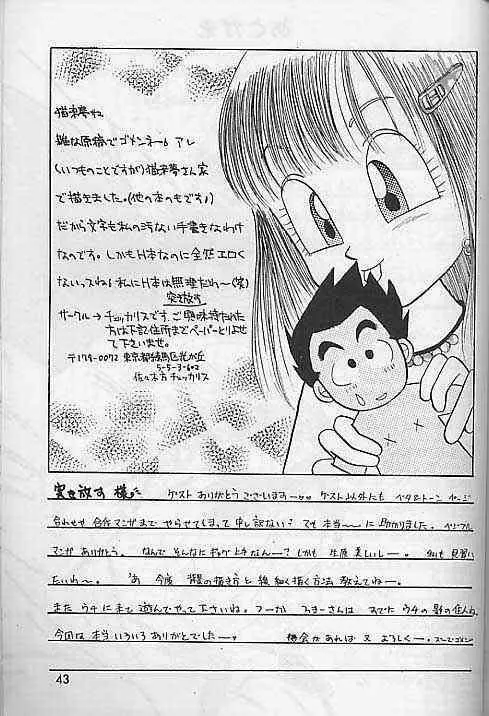 雑な原稿でゴメンネ。アレ
(いつものことですが)猫未夢さん家
で描きました。(他の本のもです。)
だから文字も私の汚ない手書きなわけ
なのです。しかもH本なのに全然エロく
ないってね。私にH本は無理だわ〜(笑)
突き放す
サークル→チェッカリスです。ご興味持たれた
方は下記住所までペーパーとりよせ
て下さいませ。
〒179-0072 東京都練馬区光が丘
5-5-3-602
佐々木方 チェッカリス
突き放す 様
ゲスト ありがとう ございますー ゲスト以外にも ベタ&トーン
合わせや 合作 マンガまで やらせてしまって 申し訳ない? でも 本当〜に 助かりました。
マンガ ありがとう。 なんで そんなに ギャグ 上手なんー? しかも 生原 美しいしー。 見習い
たいわ〜。 あ 今度 背景の描き方と 線 細く描く方法 教えてねー。
また ウチに来て 遊んでやって下さいね。
今回は 本当 いろいろ ありがとでしたー 機会があれば 又 よろしくー。
43